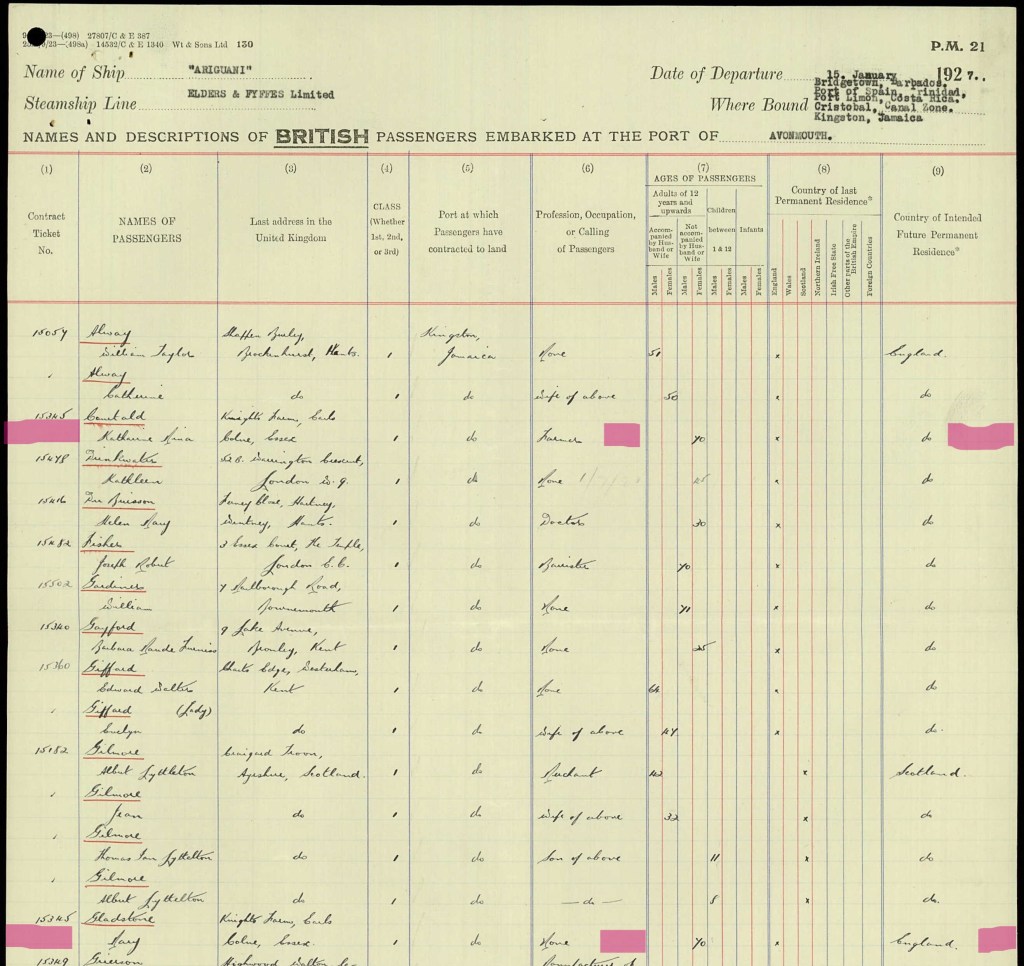 27807/C & E 387
14532/C & E 1340 Wt & Sons Ltd 130
P.M. 21
Name of Ship "ARIGUANI"
Date of Departure 15. January 1927.
Steamship Line ELDERS & FYFFES Limited
Where Bound Bridgetown, Barbados.
Port of Spain, Trinidad,
Port Limon, Costa Rica.
Cristobal, Canal Zone.
Kingston, Jamaica
NAMES AND DESCRIPTIONS OF BRITISH PASSENGERS EMBARKED AT THE PORT OF AVONMOUTH.
(1) (2) (3) (4) (5) (6) (7) (8) (9)
Contract Ticket No.
NAMES OF PASSENGERS
Last address in the United Kingdom
CLASS (Whether 1st, 2nd, or 3rd)
Port at which Passengers have contracted to land
Profession, Occupation, or Calling of Passengers
AGES OF PASSENGERS
Adults of 12 years and upwards
Accompanied by Husband or Wife
Not accompanied by Husband or Wife
Children between 1 & 12
Infants
Males Females Males Females Males Females Males Females
Country of last Permanent Residence*
England Wales Scotland Northern Ireland Irish Free State Other parts of the British Empire Foreign Countries
Country of Intended Future Permanent Residence*
15057 Alway Kingston,
William Taylor Brockenhurst, Hants. 1 Jamaica None 51 x England.
Alway
Catherine do 1 do Wife of above 50 x do
15345 Courtauld Knights Farm, Earls
Katharine Mina Colne, Essex 1 do Farmer 40 x do
15478 Drinkwater Warrington Crescent,
Kathleen London W. 9. 1 do None x do
15416 Du Buisson Hartney,
Helen Mary Wintney, Hants. 1 do Doctor 30 x do
15482 Fisher 3 Essex Court, The Temple,
Joseph Robert London E.C. 1 do Barrister 40 x do
15502 Gardiner 7 Marlborough Road,
William Bournemouth 1 do None 41 x do
15340 Gayford 9 Lake Avenue,
Barbara Maude Furniss Bromley, Kent 1 do None 25 x do
15360 Giffard Charts Edge, Westerham,
Edward Walter Kent 1 do None 64 x do
Giffard (Lady)
Evelyn do 1 do Wife of above 47 x do.
15182 Gilmore Craigard Troon,
Albert Lyttleton Ayrshire, Scotland. 1 do Merchant 42 x Scotland.
Gilmore
Jean do 1 do Wife of above 32 x do
Gilmore
Thomas Ian Lyttelton do 1 do Son of above 11 x do
Gilmore
Albert Lyttelton do 1 do — do — 8 x do.
15345 Gladstone Knights Farm, Earls
Mary Colne, Essex. 1 do None 40 x England.
15349 Grierson Highwood